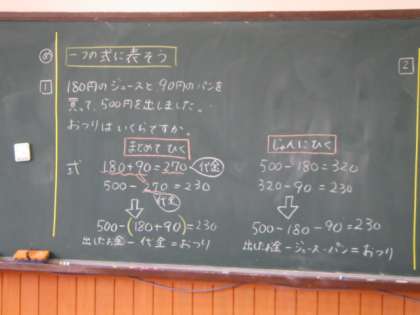 ⑧ 一つの式に表そう
1 180円のジュースと、90円のパンを
買って、500円を出しました。
おつりはいくらですか。
まとめてひく
式 180+90=270 代金
500-270=230
代金
500-(180+90)=230
出したお金-代金=おつり
2
じゅんにひく
500-180=320
320-90=230
500-180-90=230
出したお金-ジュース-パン=おつり